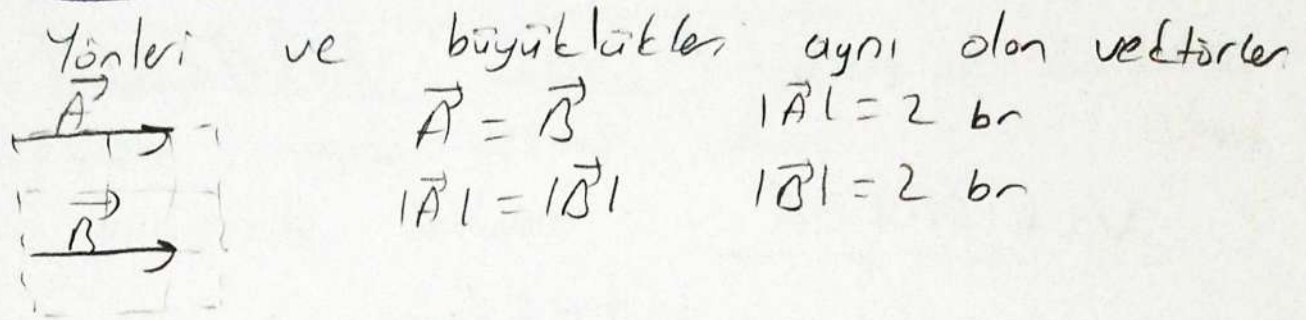 Yönleri ve büyüklükler aynı olan vektörler
A⃗ A⃗ = B⃗ |A⃗| = 2 br
B⃗ |A⃗| = |B⃗| |B⃗| = 2 br